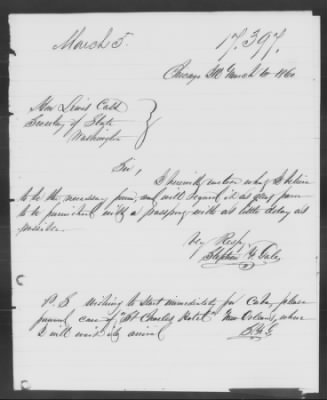 March 5.
17.397.
Chicago Ill March 1860
Hon Lewis Cass
Secretary of State
Washington
Sir,
I herewith enclose what I believe
to be the necessary form, and will regard it as a great favor
to be furnished with a passport with as little delay as
possible.
Very Respy
Stephen H Gale
P.S wishing to start immediately for Cuba please
forward care of "St Charles Hotel" New Orleans, where
I will await its arrival
S.H.G